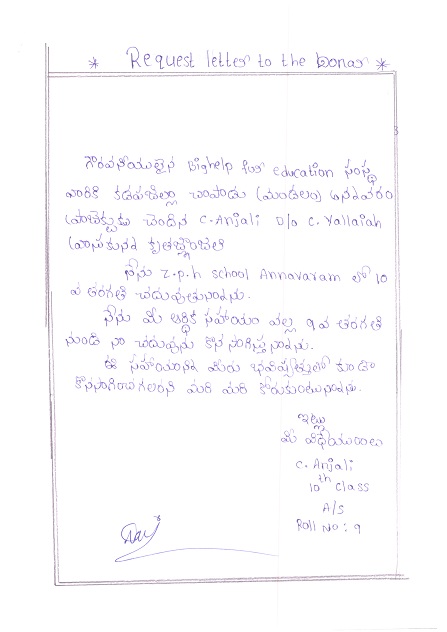 * Request letter to the Donar *
గౌరవనీయులైన Bighelp for education సంస్థ
వారికి కడపజిల్లా చాపాడు (మండలం) అన్నవరం
ప్రాజెక్టుకు చెందిన C.Anjali D/o C. Yallaiah
వ్రాసుకున్న కృతజ్ఞాంజలి
నేను Z.p.h school Annavaram లో 10
వ తరగతి చదువుతున్నాను.
నేను మీ ఆర్థిక సహాయం వల్ల 9వ తరగతి
నుండి నా చదువును కొనసాగిస్తున్నాను.
ఈ సహాయాన్ని మీరు భవిష్యత్తులో కూడా
కొనసాగించగలరని మరీ మరీ కోరుకుంటున్నాను.
ఇట్లు
మీ విధేయురాలు
C. Anjali
10th class
A/S
Roll No : 9